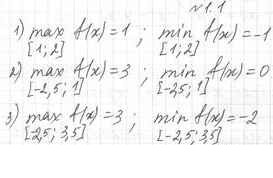 N 1.1
1) max f(x) = 1 ; min f(x) = -1
[1; 2] [1; 2]
2) max f(x) = 3 ; min f(x) = 0
[-2,5; 1] [-2,5; 1]
3) max f(x) = 3 ; min f(x) = -2
[-2,5; 3,5] [-2,5; 3,5]